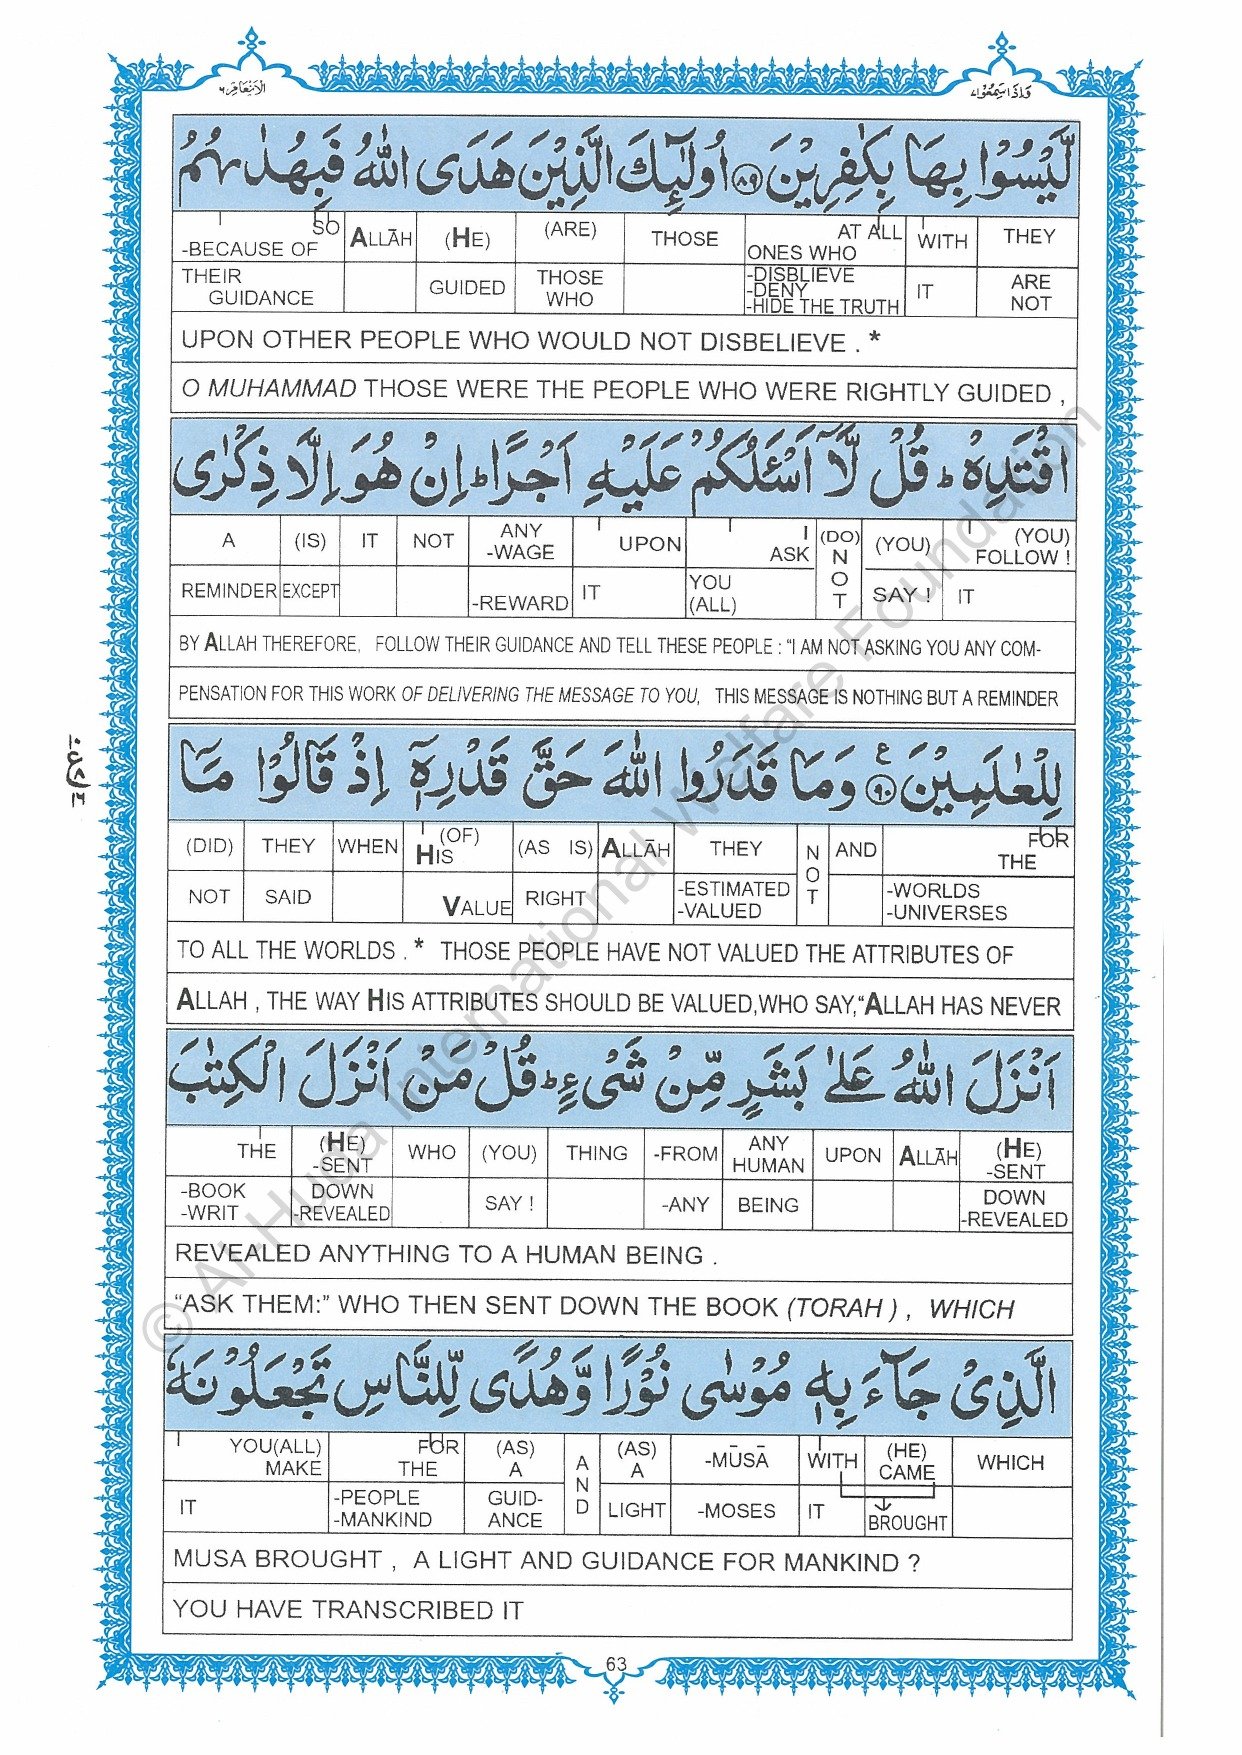 وَاِذَا سَمِعُوْا٧
الْاَنْعَام٦
لَّيْسُوْا بِهَا بِكٰفِرِيْنَ ۝٨٩ اُولٰٓئِكَ الَّذِيْنَ هَدَى اللّٰهُ فَبِهُدٰىهُمُ
SO -BECAUSE OF | ALLĀH | (HE) | (ARE) | THOSE | AT ALL ONES WHO | WITH | THEY
THEIR GUIDANCE | GUIDED | THOSE WHO | -DISBLIEVE -DENY -HIDE THE TRUTH | IT | ARE NOT
UPON OTHER PEOPLE WHO WOULD NOT DISBELIEVE . *
O MUHAMMAD THOSE WERE THE PEOPLE WHO WERE RIGHTLY GUIDED ,
اقْتَدِهْ ؕ قُلْ لَّاۤ اَسْـَٔلُكُمْ عَلَيْهِ اَجْرًا ؕ اِنْ هُوَ اِلَّا ذِكْرٰى
A | (IS) | IT | NOT | ANY -WAGE | UPON | I ASK | (DO) NOT | (YOU) | (YOU) FOLLOW !
REMINDER | EXCEPT | -REWARD | IT | YOU (ALL) | SAY ! | IT
BY ALLAH THEREFORE, FOLLOW THEIR GUIDANCE AND TELL THESE PEOPLE : “I AM NOT ASKING YOU ANY COM-
PENSATION FOR THIS WORK OF DELIVERING THE MESSAGE TO YOU, THIS MESSAGE IS NOTHING BUT A REMINDER
لِلْعٰلَمِيْنَ ۝٩٠ ع وَمَا قَدَرُوا اللّٰهَ حَقَّ قَدْرِهٖۤ اِذْ قَالُوْا مَاۤ
(DID) | THEY | WHEN | (OF) HIS | (AS IS) | ALLĀH | THEY | NOT | AND | FOR THE
NOT | SAID | VALUE | RIGHT | -ESTIMATED -VALUED | -WORLDS -UNIVERSES
TO ALL THE WORLDS . * THOSE PEOPLE HAVE NOT VALUED THE ATTRIBUTES OF
ALLAH , THE WAY HIS ATTRIBUTES SHOULD BE VALUED,WHO SAY,“ALLAH HAS NEVER
اَنْزَلَ اللّٰهُ عَلٰى بَشَرٍ مِّنْ شَىْءٍ ؕ قُلْ مَنْ اَنْزَلَ الْكِتٰبَ
THE | (HE) -SENT | WHO | (YOU) | THING | -FROM | ANY HUMAN | UPON | ALLĀH | (HE) -SENT
-BOOK -WRIT | DOWN -REVEALED | SAY ! | -ANY | BEING | DOWN -REVEALED
REVEALED ANYTHING TO A HUMAN BEING .
“ASK THEM:” WHO THEN SENT DOWN THE BOOK (TORAH ) , WHICH
الَّذِىْ جَآءَ بِهٖ مُوْسٰى نُوْرًا وَّهُدًى لِّلنَّاسِ تَجْعَلُوْنَهٗ
YOU(ALL) MAKE | FOR THE | (AS) A | AND | (AS) A | -MŪSĀ | WITH | (HE) CAME | WHICH
IT | -PEOPLE -MANKIND | GUID- ANCE | LIGHT | -MOSES | IT | BROUGHT
MUSA BROUGHT , A LIGHT AND GUIDANCE FOR MANKIND ?
YOU HAVE TRANSCRIBED IT
63
© Al-Huda International Welfare Foundation